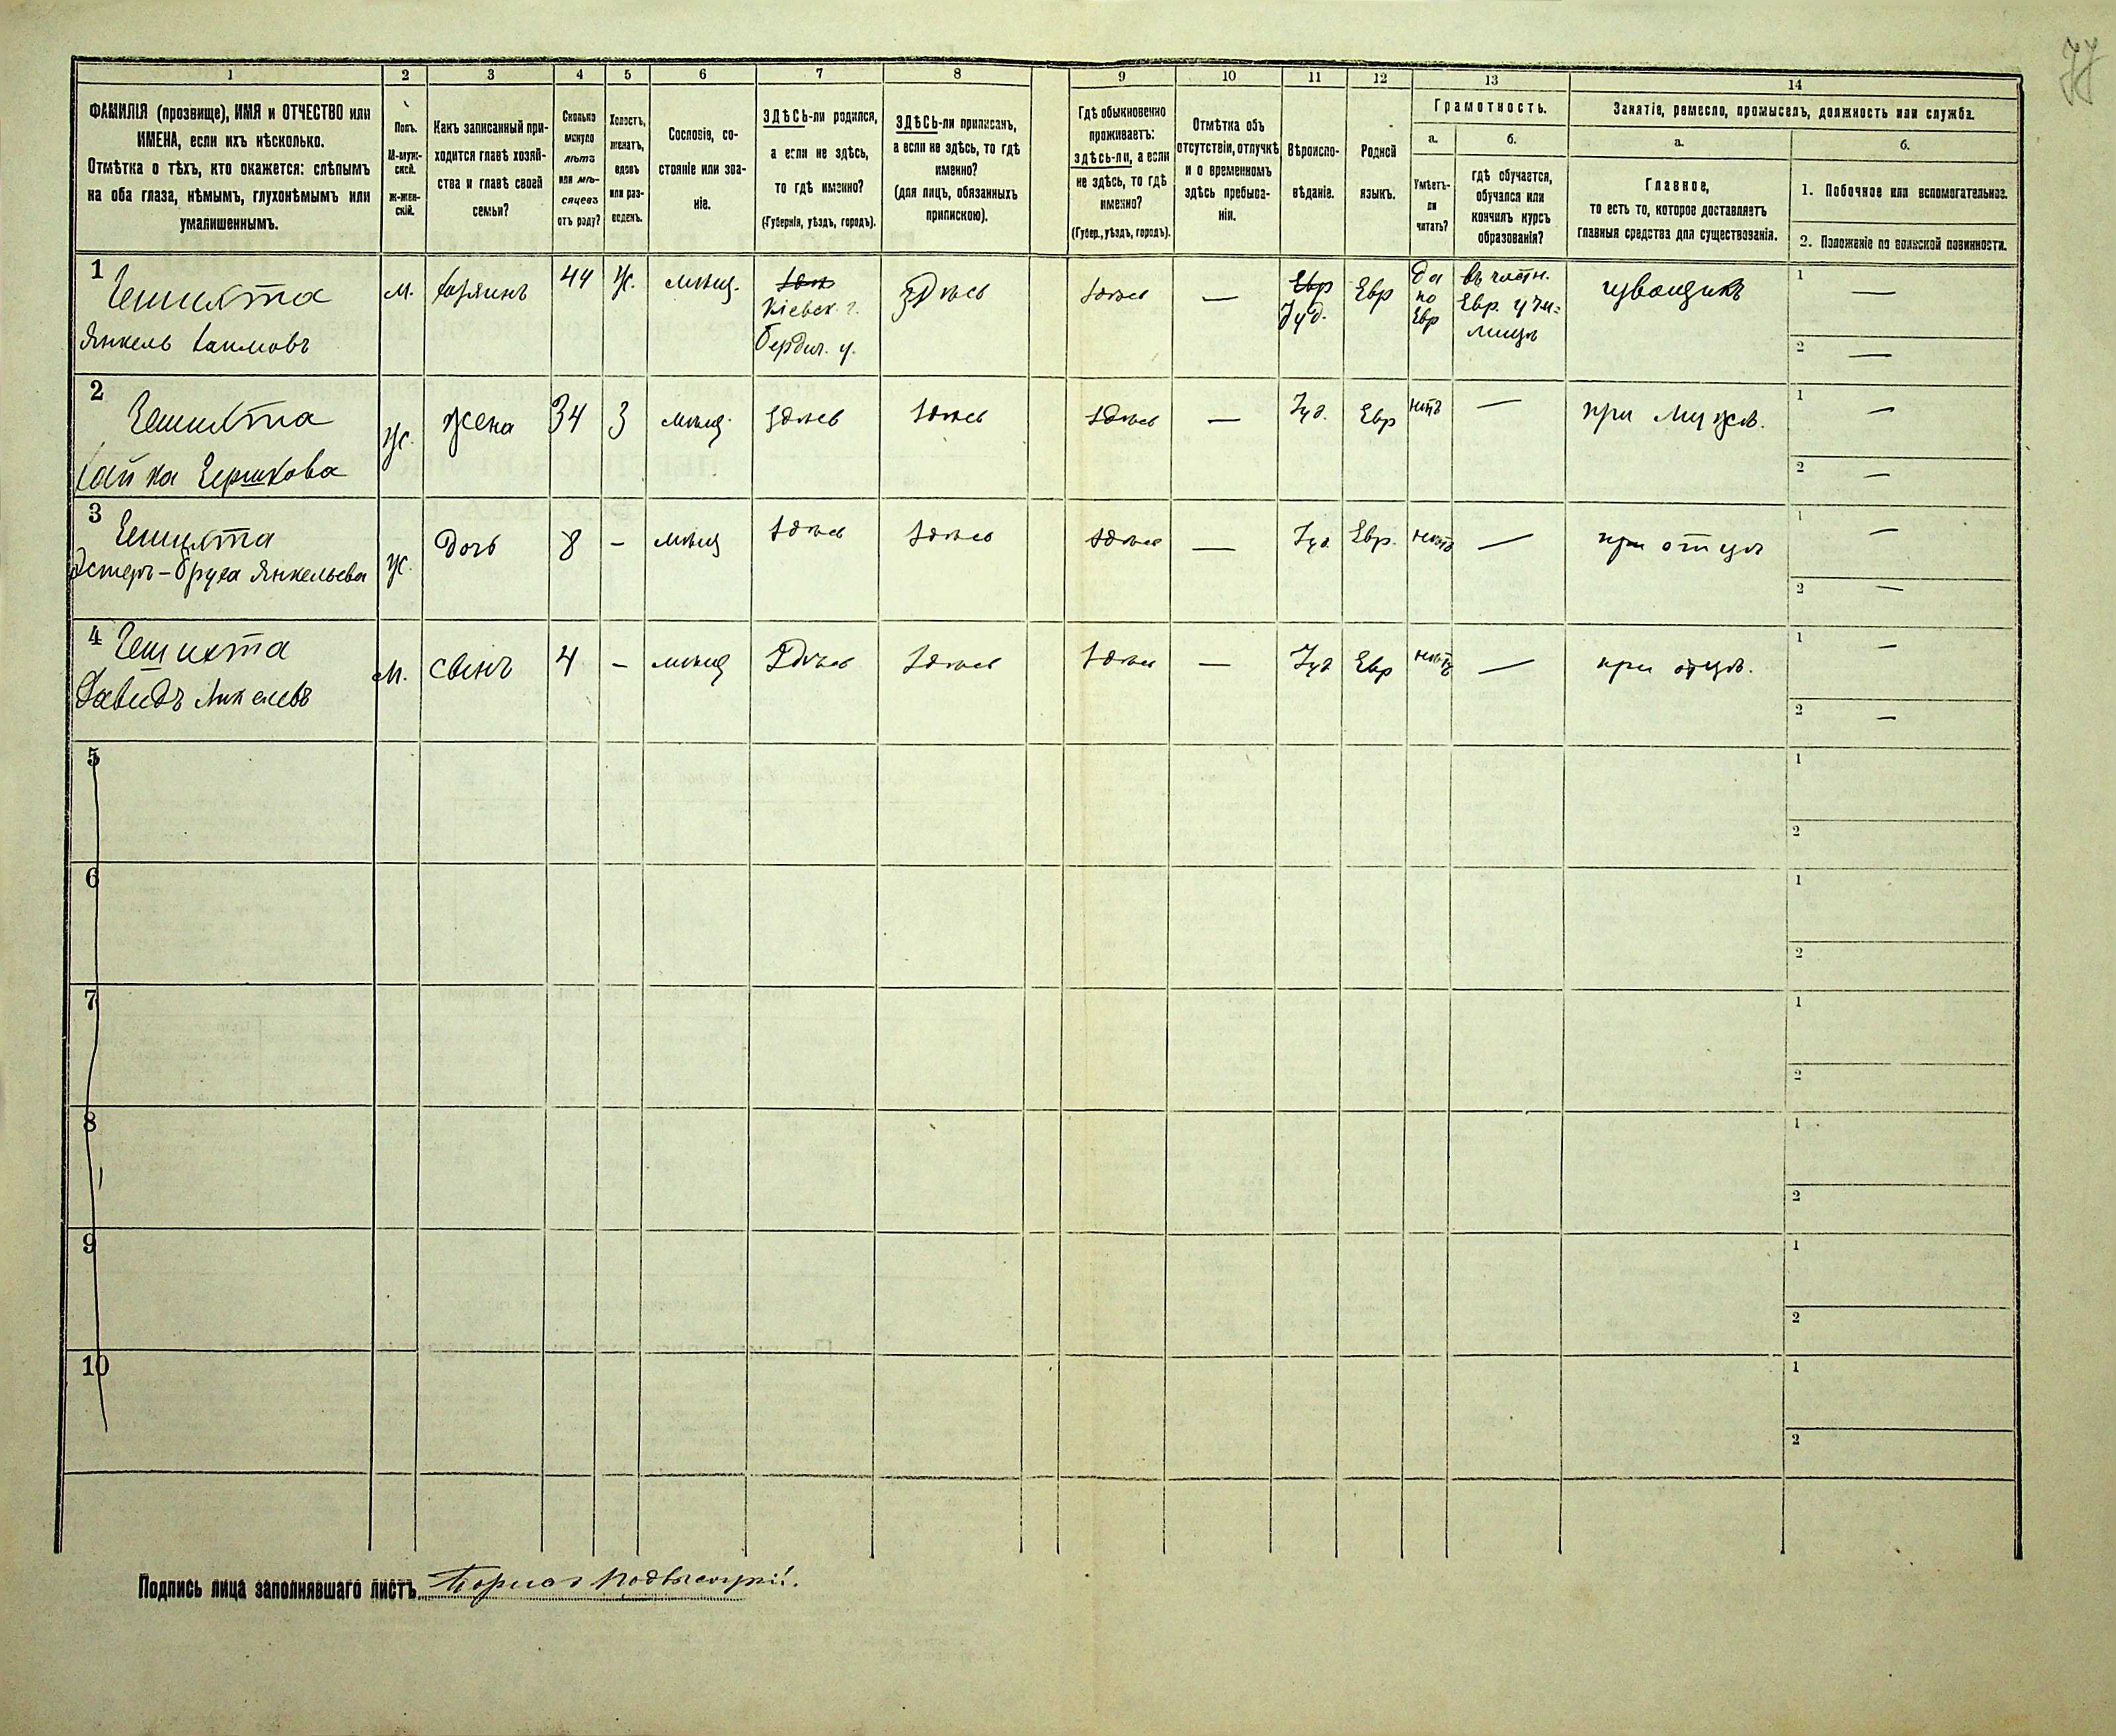 77
1 2 3 4 5 6 7 8 9 10 11 12 13 14
ФАМИЛІЯ (прозвище), ИМЯ и ОТЧЕСТВО или
ИМЕНА, если ихъ нѣсколько.
Отмѣтка о тѣхъ, кто окажется: слѣпымъ
на оба глаза, нѣмымъ, глухонѣмымъ или
умалишеннымъ.
Полъ.
М-муж-
ской.
Ж-жен-
скій.
Какъ записанный при-
ходится главѣ хозяй-
ства и главѣ своей
семьи?
Сколько
минуло
лѣтъ
или мѣ-
сяцевъ
отъ роду?
Холостъ,
женатъ,
вдовъ
или раз-
веденъ.
Сословіе, со-
стояніе или зва-
ніе.
ЗДѢСЬ-ли родился,
а если не здѣсь,
то гдѣ именно?
(Губернія, уѣздъ, городъ).
ЗДѢСЬ-ли приписанъ,
а если не здѣсь, то гдѣ
именно?
(для лицъ, обязанныхъ
припискою).
Гдѣ обыкновенно
проживаетъ:
здѣсь-ли, а если
не здѣсь, то гдѣ
именно?
(Губер., уѣздъ, городъ).
Отмѣтка объ
отсутствіи, отлучкѣ
и о временномъ
здѣсь пребыва-
ніи.
Вѣроиспо-
вѣданіе.
Родной
языкъ.
Грамотность.
а.
Умѣетъ-
ли
читать?
б.
гдѣ обучается,
обучался или
кончилъ курсъ
образованія?
Занятіе, ремесло, промыселъ, должность или служба.
а.
Главное,
то есть то, которое доставляетъ
главныя средства для существованія.
б.
1. Побочное или вспомогательное.
2. Положеніе по воинской повинности.
1
Гешихта
Янкель Хаимовъ
м.
хозяинъ
44
ж.
мѣщ.
Кіевск. г.
Бердич. у.
здѣсь
здѣсь
—
Евр
Іуд.
Евр
да
по
Евр
въ частн.
Евр. учи=
лищѣ
1 —
2 —
2
Гешихта
Хайка Гершкова
ж.
жена
34
З
мѣщ.
здѣсь
здѣсь
здѣсь
—
Іуд.
Евр
нѣтъ
—
при мужѣ.
1 —
2 —
3
Гешихта
Эстеръ-Бруха Янкельева
ж.
дочь
8
-
мѣщ
здѣсь
здѣсь
здѣсь
—
Іуд.
Евр.
нѣтъ
—
при отцѣ
1 —
2 —
4
Гешихта
Давидъ Янкелевъ
м.
сынъ
4
-
мѣщ
здѣсь
здѣсь
здѣсь
—
Іуд
Евр
нѣтъ
—
при отцѣ.
1 —
2 —
5
1
2
6
1
2
7
1
2
8
1
2
9
1
2
10
1
2
Подпись лица заполнявшаго листъ